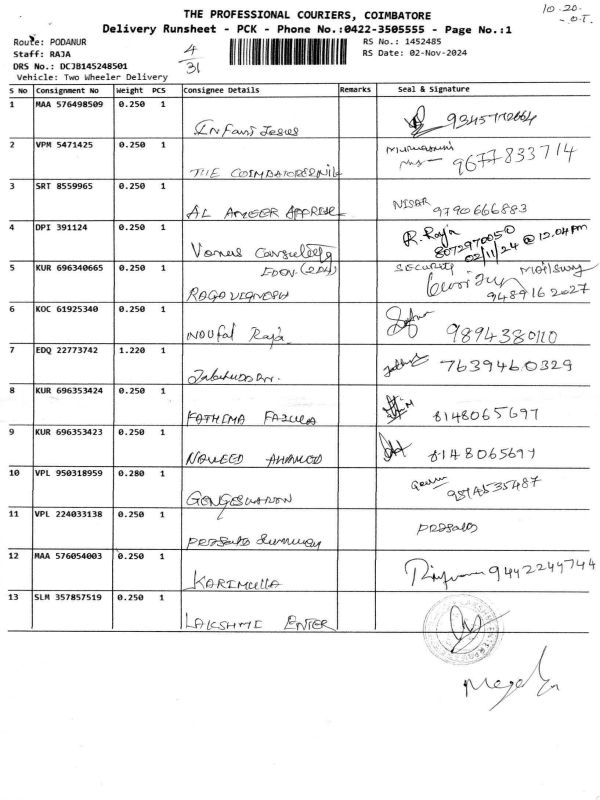 THE PROFESSIONAL COURIERS, COIMBATORE
10-20-
Delivery Runsheet - PCK - Phone No.:0422-3505555 - Page No.:1
Route: PODANUR
4/31
RS No.: 1452485
Staff: RAJA
RS Date: 02-Nov-2024
DRS No.: DCJB145248501
Vehicle: Two Wheeler Delivery
S No Consignment No Weight PCS Consignee Details Remarks Seal & Signature
1 MAA 576498509 0.250 1
Infant Jesus
2 VPM 5471425 0.250 1
THE
9677833714
3 SRT 8559965 0.250 1
AL AMEER
NISAR
9790666883
4 DPI 391124 0.250 1
R. Raja
8072970050
02/11/24 @ 12.04 pm
5 KUR 696340665 0.250 1
SECURITY
9489162027
6 KOC 61925340 0.250 1
Noufal Raja
9894380110
7 EDQ 22773742 1.220 1
7639460329
8 KUR 696353424 0.250 1
FATHIMA
8148065697
9 KUR 696353423 0.250 1
NAVEED AHAMED
8148065697
10 VPL 950318959 0.280 1
11 VPL 224033138 0.250 1
12 MAA 576054003 0.250 1
KARIMULLA
9442244744
13 SLM 357857519 0.250 1
LAKSHMI ENTER